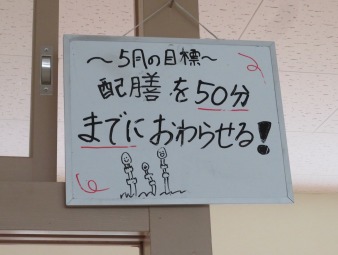 ～5月の目標～
配膳を50分
までにおわらせる!